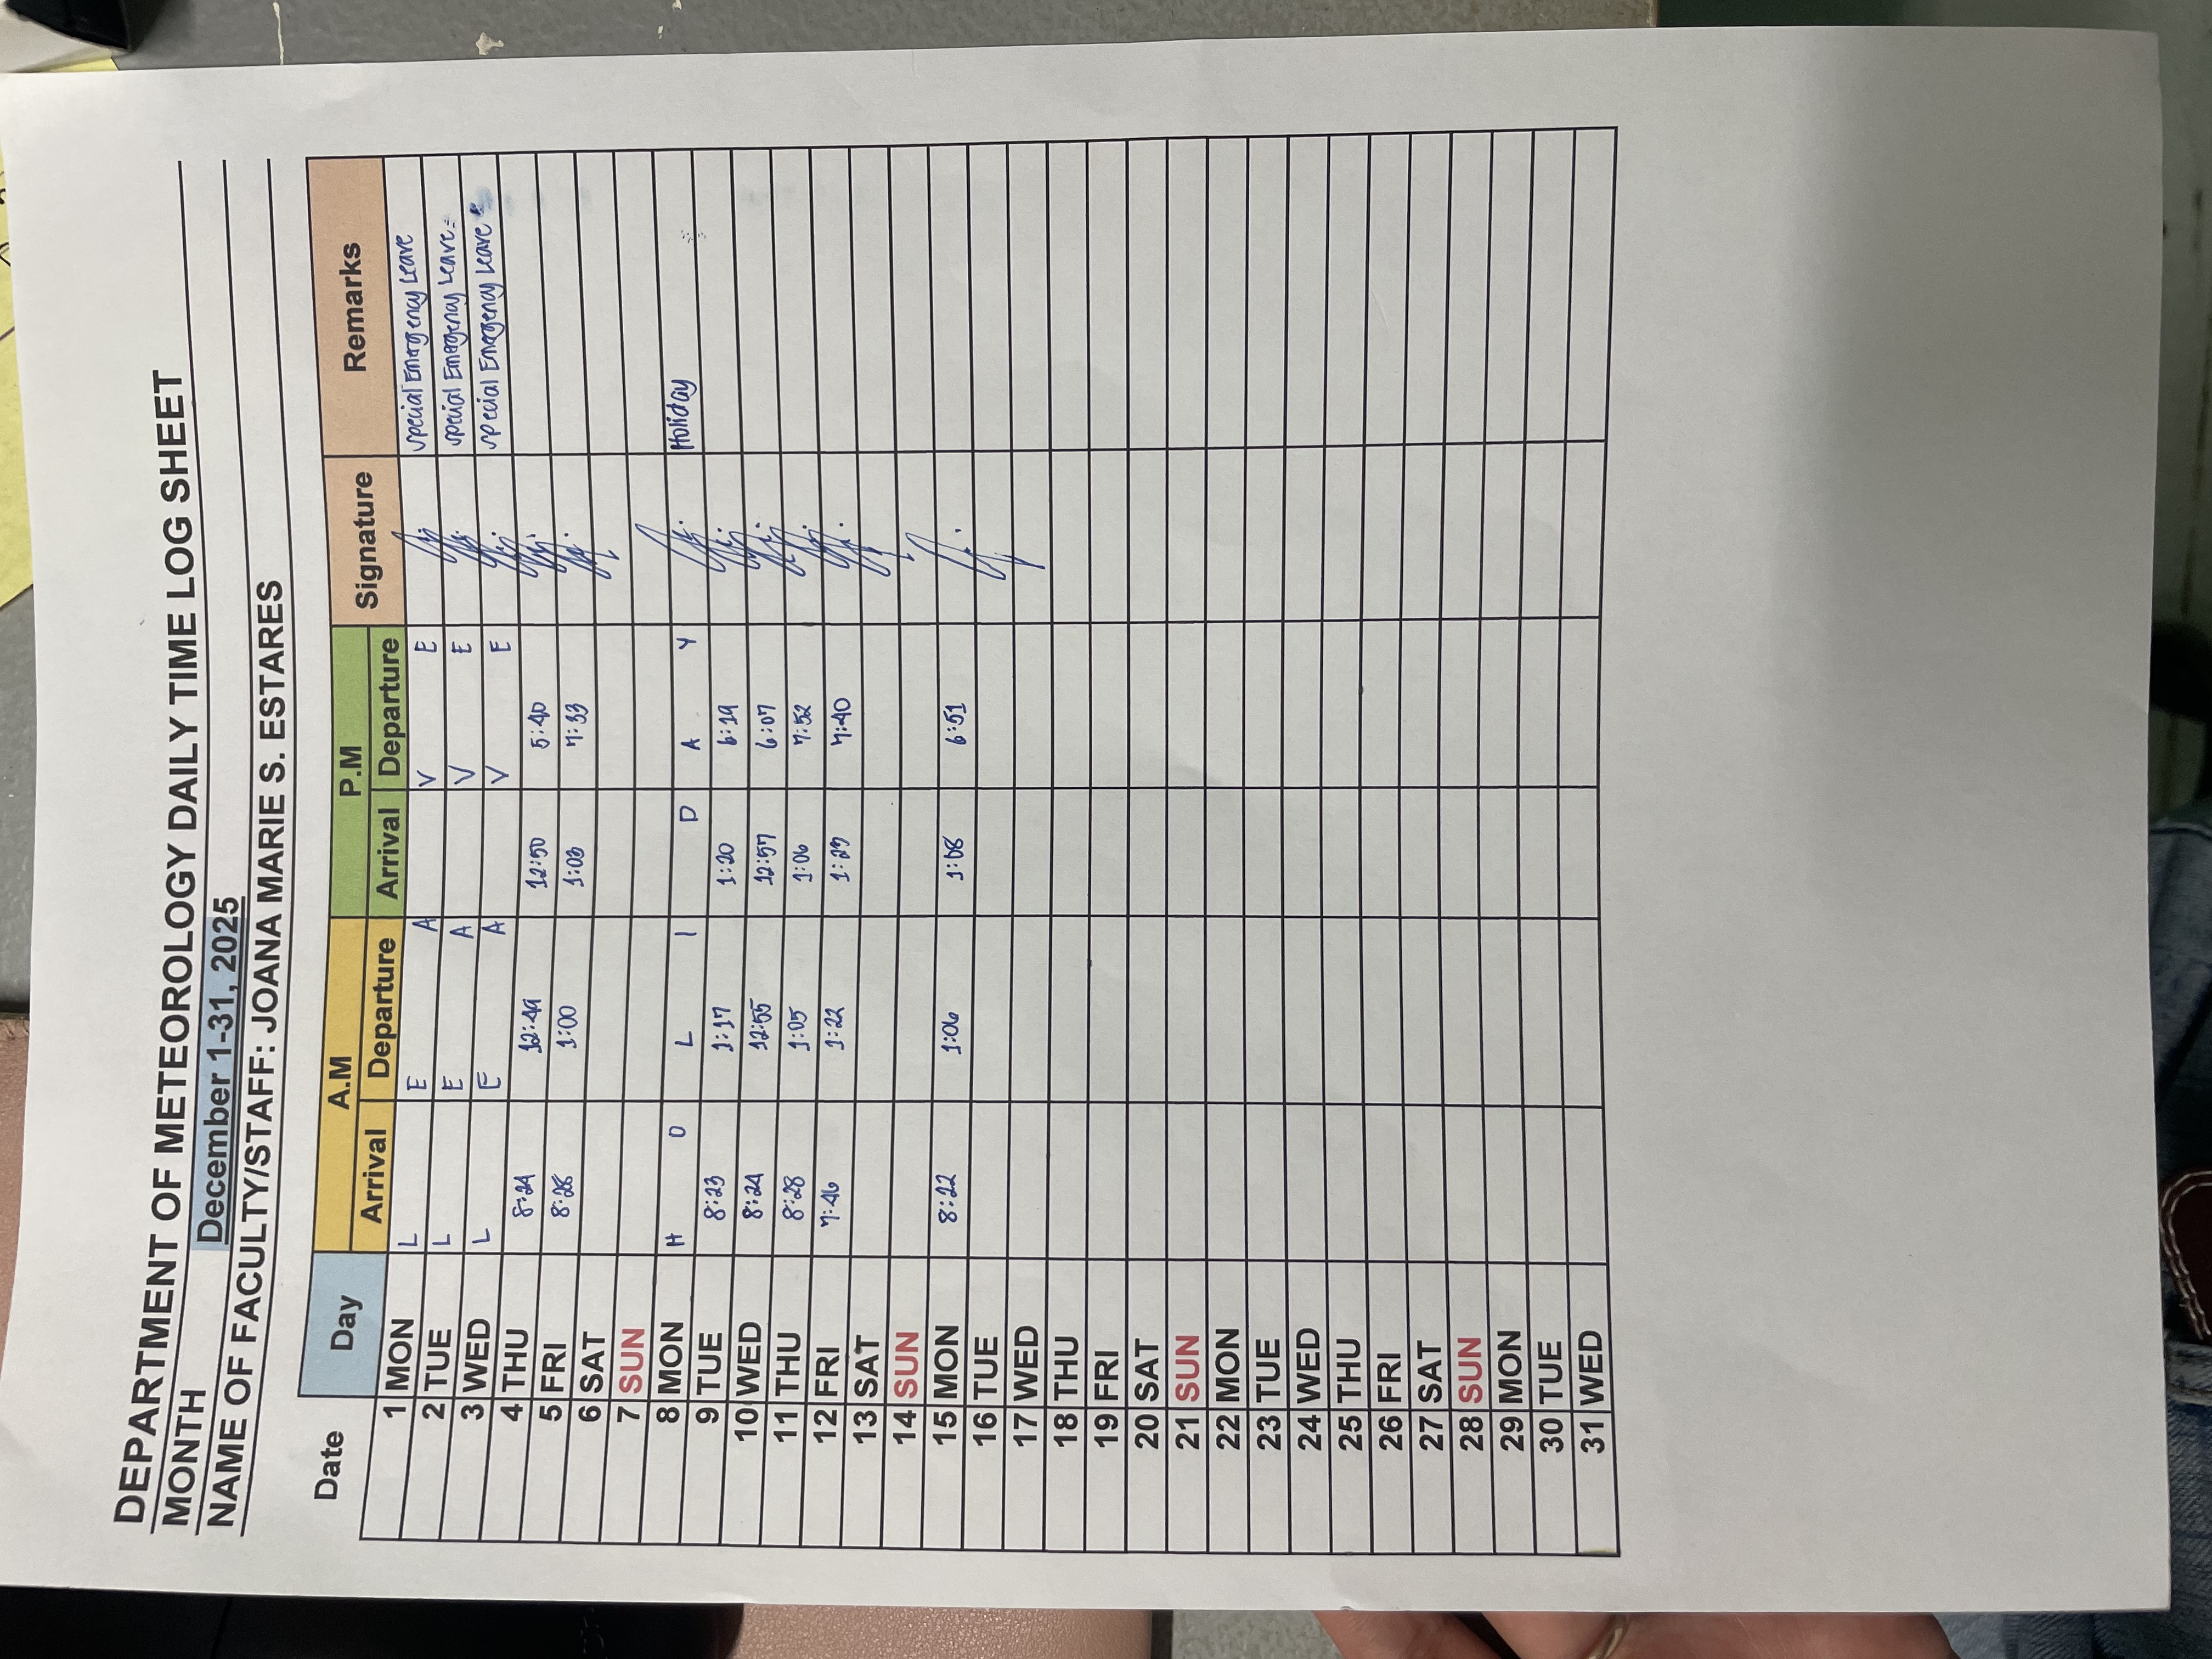 DEPARTMENT OF METEOROLOGY DAILY TIME LOG SHEET
MONTH December 1-31, 2025
NAME OF FACULTY/STAFF: JOANA MARIE S. ESTARES
Date Day A.M P.M Signature Remarks
Arrival Departure Arrival Departure
1 MON L E A V E Special Emergency Leave
2 TUE L E A V E Special Emergency Leave
3 WED L E A V E Special Emergency Leave
4 THU 8:24 12:49 12:50 5:40
5 FRI 8:28 1:00 1:03 7:33
6 SAT
7 SUN
8 MON H O L I D A Y Holiday
9 TUE 8:23 1:17 1:20 6:19
10 WED 8:24 12:55 12:57 6:07
11 THU 8:28 1:05 1:06 7:52
12 FRI 7:46 1:22 7:40
13 SAT
14 SUN
15 MON 8:22 1:06 1:08 6:51
16 TUE
17 WED
18 THU
19 FRI
20 SAT
21 SUN
22 MON
23 TUE
24 WED
25 THU
26 FRI
27 SAT
28 SUN
29 MON
30 TUE
31 WED